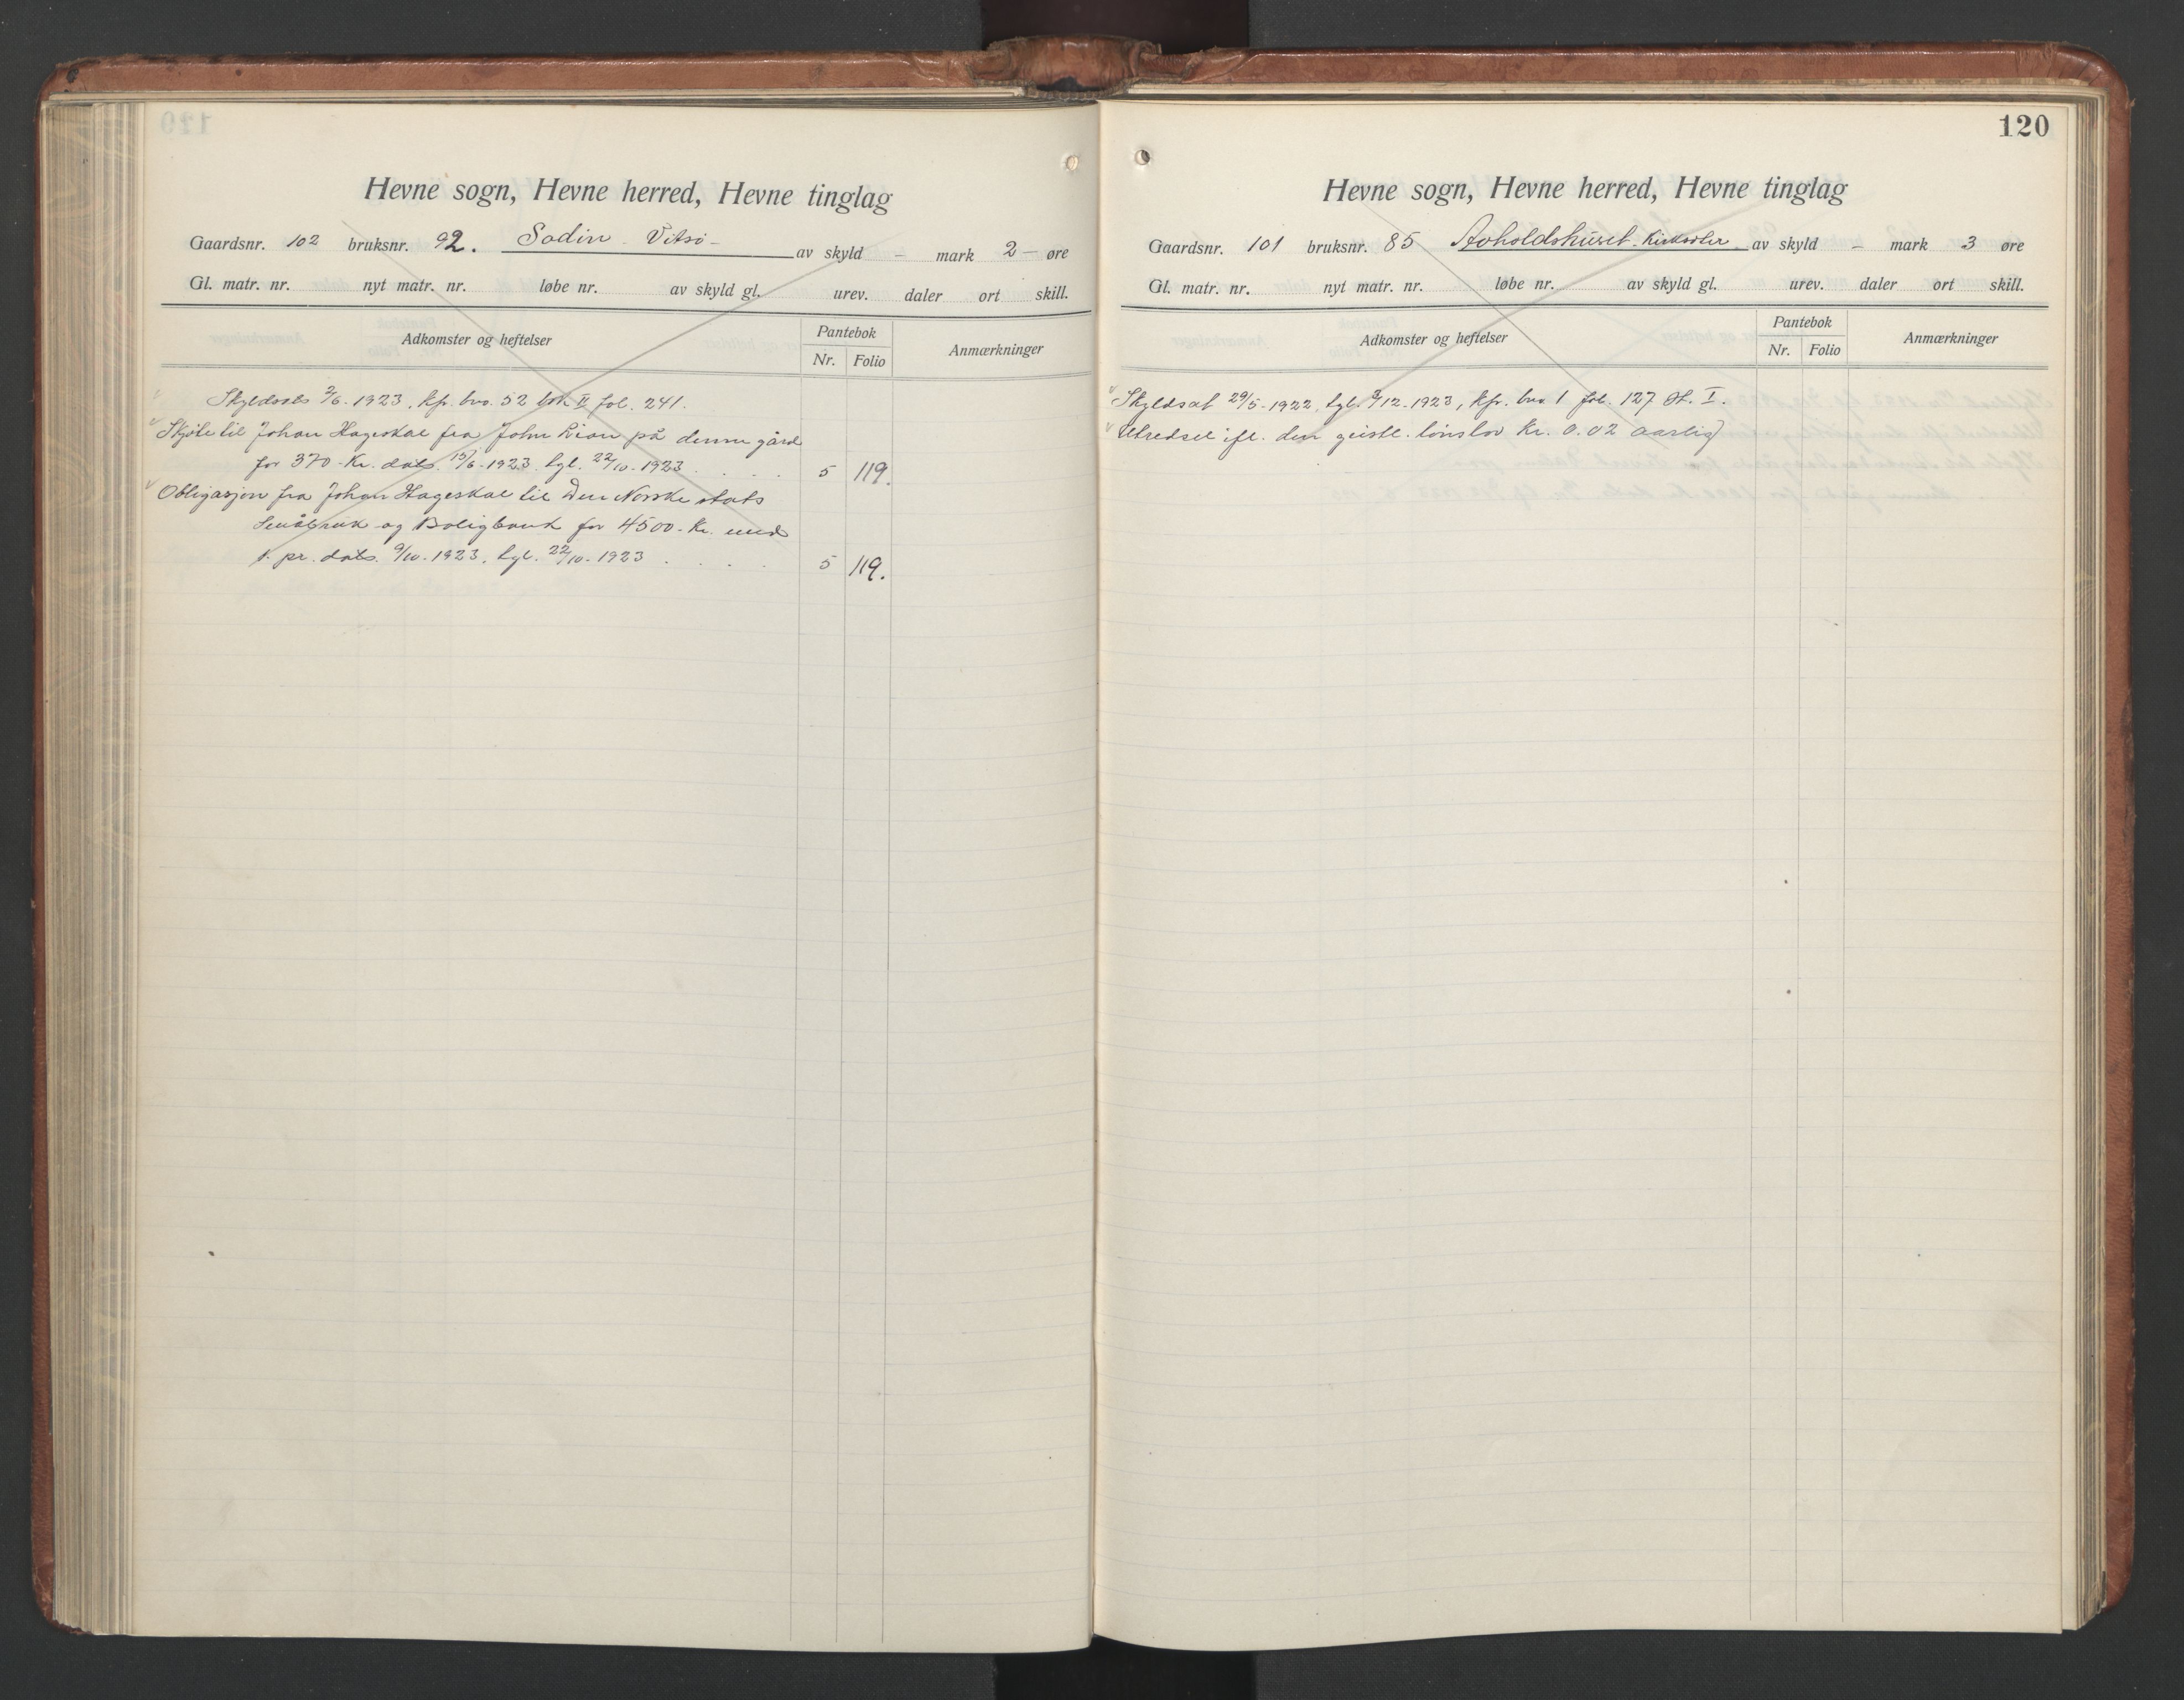 Hevne sogn, Hevne herred, Hevne tinglag
Gaardsnr. 102 bruksnr. 92. Sodin Vitsø - av skyld - mark 2 - øre
Gl. matr. nr. nyt matr. nr. løbe nr. av skyld gl. urev. daler ort skill.
Adkomster og heftelser Pantebok Anmærkninger
Nr. Folio
Skyldsats 2/6. 1923. kfr. bno. 52 bok II fol. 241.
Skjøte til Johan Hageskal fra John Lian på denne gård
for 370 - Kr. dats. 15/6-1923. tgl. 22/10-1923 . . . 5 119.
Obligasjon fra Johan Hageskal til Den Norske stats
Småbruk og Boligbank for 4500 - Kr. med
1. pr. dats. 9/10-1923. tgl. 22/10-1923 . . . . 5 119.
120
Hevne sogn, Hevne herred, Hevne tinglag
Gaardsnr. 101 bruksnr. 85 Avholdshuset. av skyld - mark 3 øre
Gl. matr. nr. nyt matr. nr. løbe nr. av skyld gl. urev. daler ort skill.
Adkomster og heftelser Pantebok Anmærkninger
Nr. Folio
Skyldsat 29/5-1922, tgl. /12-1923, kfr. bno 1 fol. 127 I.
Utredsel ifl. den geistl. lønslov Kr. 0.02 aarlig